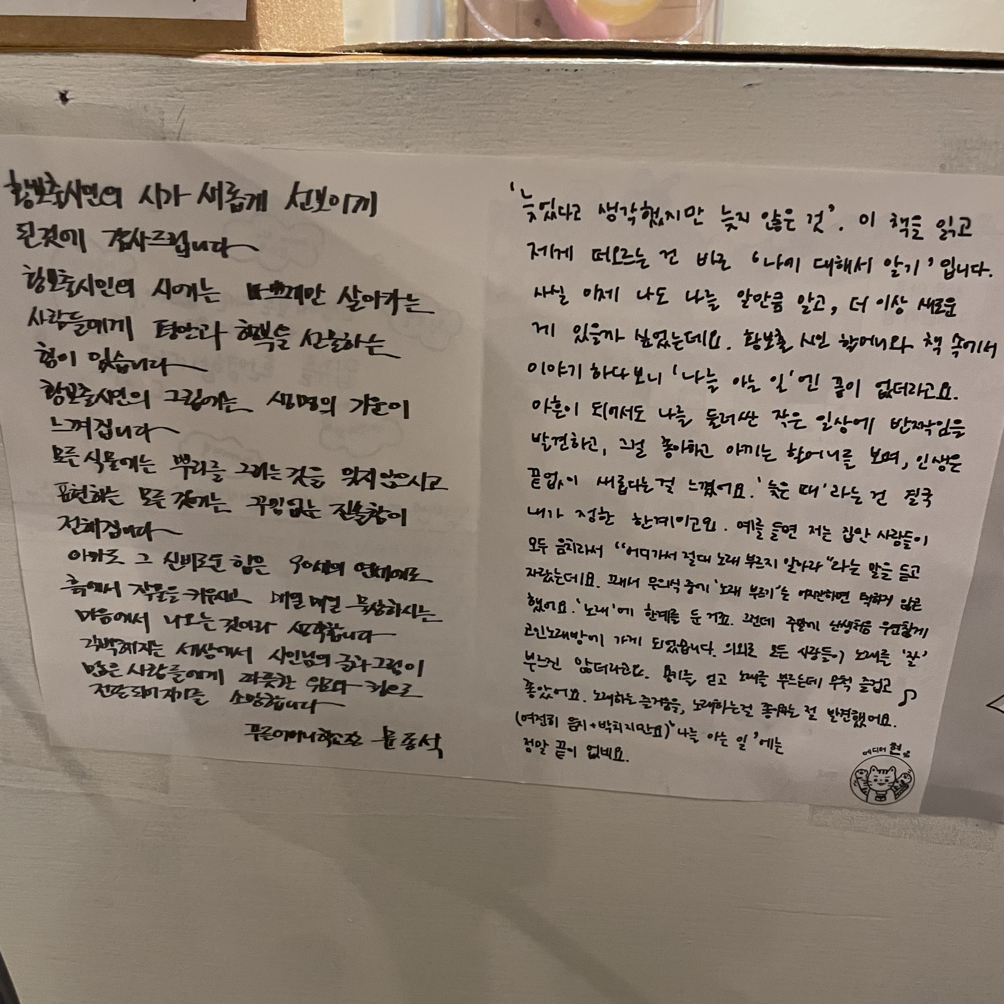 황보출시인의 시가 새롭게 선보이게
된것에 감사드립니다
황보출시인의 시에는 바쁘게만 살아가는
사람들에게 평안과 행복을 선물하는
힘이 있습니다
황보출시인의 그림에는 생명의 기운이
느껴집니다
모든식물에는 뿌리를 그리는것을 잊지않으시고
표현하는 모든것에는 꾸밈없는 진솔함이
전해집니다
아마도 그 신비로운 힘은 90세의 연세에도
흙에서 작물을 키우시고 매일매일 묵상하시는
마음에서 나오는것이라 생각합니다
각박해지는 세상에서 시인님의 글과 그림이
많은 사람들에게 따뜻한 위로와 힘으로
전파되어지기를 소망합니다
푸른어머니학교 윤종석
'늦었다고 생각했지만 늦지 않은 것'. 이 책을 읽고
제게 떠오르는 건 바로 '나에 대해서 알기'입니다.
사실 이제 나도 나를 알만큼 알고, 더 이상 새로운
게 있을까 싶었는데요. 황보출 시인 할머니와 책 속에서
이야기 하다보니 '나를 아는 일'엔 끝이 없더라고요.
아흔이 되어서도 나를 둘러싼 작은 일상에 반짝임을
발견하고, 그걸 좋아하고 아끼는 할머니를 보며, 인생은
끝없이 새롭다는걸 느꼈어요. '늦은 때'라는 건 결국
내가 정한 한계이고요. 예를 들면 저는 집안 사람들이
모두 음치라서 "어디가서 절대 노래 부르지 말아라"라는 말을 듣고
자랐는데요. 그래서 무의식 중에 '노래 부르기'는 웬만하면 택하지 않곤
했어요. '노래'에 한계를 둔 거죠. 그런데 주변에 난생처음 우연찮게
코인노래방에 가게 되었습니다. 의외로 모든 사람들이 노래를 '잘'
부르진 않더라고요. 용기를 얻고 노래를 부르는데 무척 즐겁고
좋았어요. 노래하는 즐거움을, 노래하는걸 좋아하는 절 발견했어요.
(여전히 음치+박치지만요) '나를 아는 일'에는
정말 끝이 없네요.
에디터 현